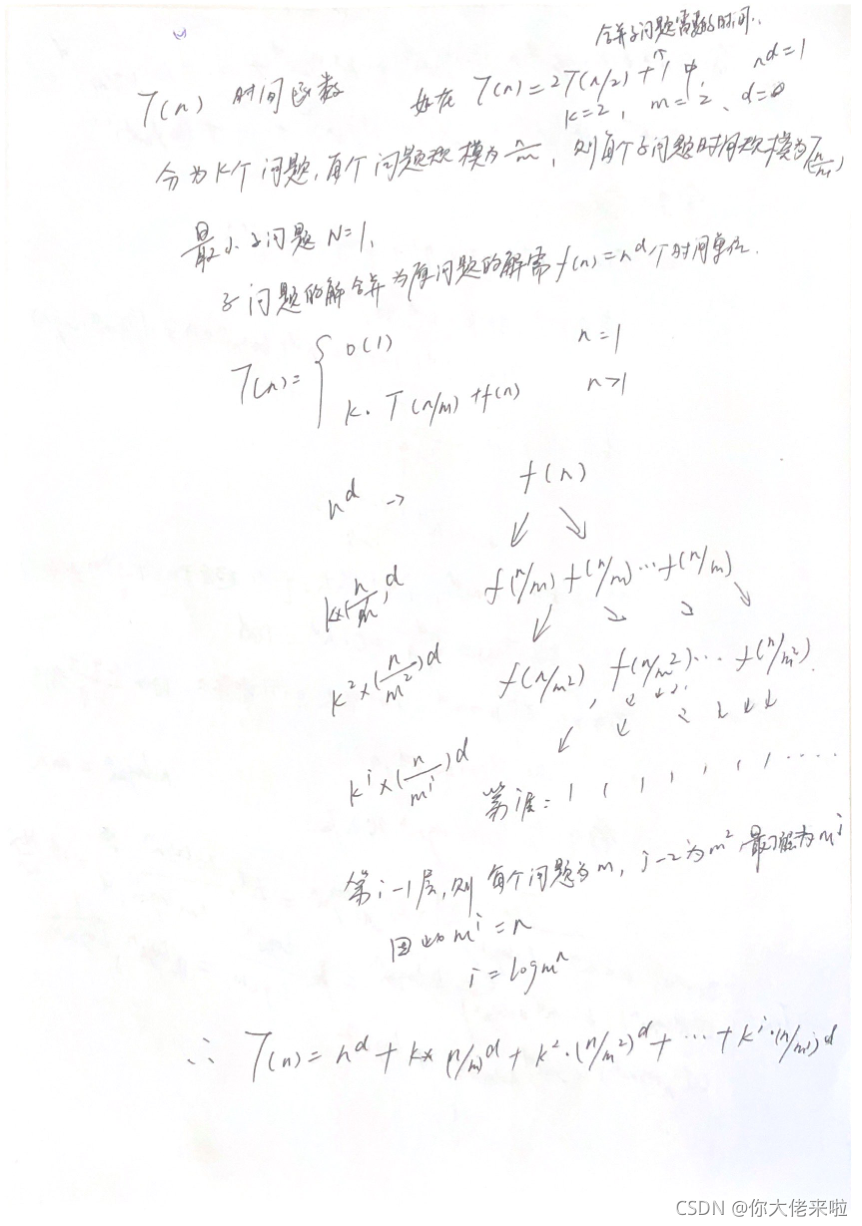 合并子问题需要的时间..
T(n) 时间函数 如在 T(n)=2T(n/2)+1 中, n^d=1
k=2, m=2、d=0
分为K个问题,每个问题规模为n/m,则每个子问题时间规模为T(n/m)
最小子问题 N=1,
子问题的解合并为原问题的解需f(n)=n^d个时间单位.
T(n)= { O(1) n=1
k. T(n/m)+f(n) n>1
n^d → f(n)
k×(n/m)^d f(n/m)+(n/m)…+f(n/m)
k²×(n/m²)^d f(n/m²) f(n/m²)… f(n/m²).
k^i×(n/m^i)^d
第i层: 1 1 1 1 1 1 1 ....
第i-1层,则每个问题为m, i-2为m² 最顶层为m^i
因此m^i=n
i=logm^n
∴ T(n)=n^d+k×(n/m)^d+k²·(n/m²)^d+…+k^i·(n/m^i)^d
CSDN @你大佬来啦